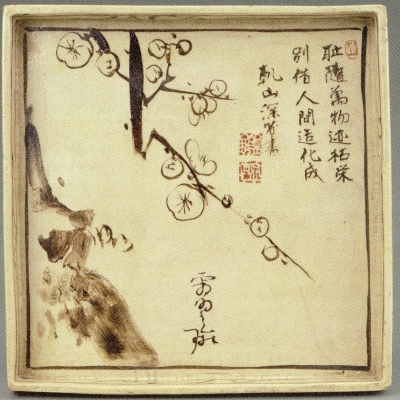 耻隨萬物逐枯栄
別借人間造化成
乾山深省書